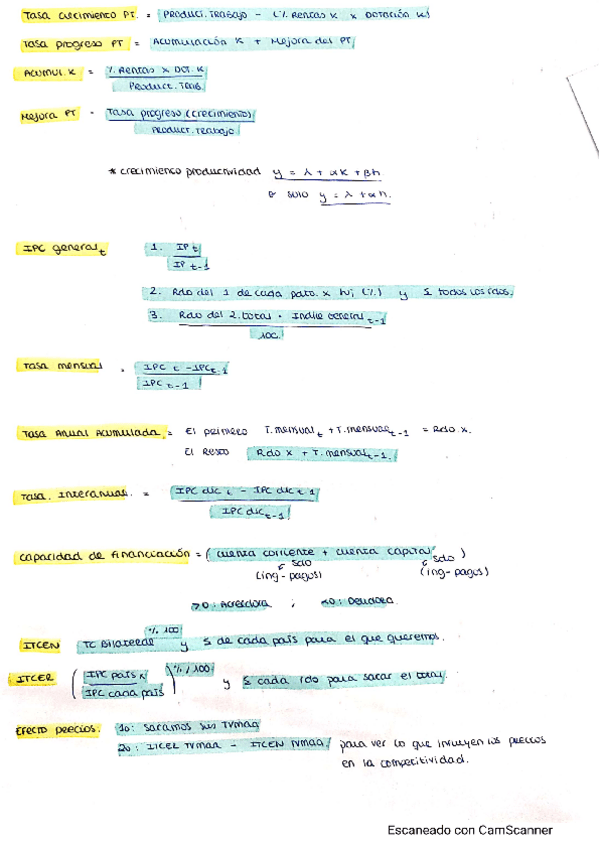 Tasa crecimiento PT. = Product. Trabajo - (% Rentas K x Dotación K)
Tasa progreso PT = Acumulación K + Mejora del PT
Acumul. K = % Rentas x Dot. K
Product. Trab.
Mejora PT = Tasa progreso (crecimiento)
Product. Trabajo
* crecimiento productividad y = λ + αK + βh
o solo y = λ + αh.
IPC general t 1. IP t
IP t-1
2. Rdo del 1 de cada pdto. x W i (%) y Σ todos los rdos.
3. Rdo del 2. total · Indice General t-1
100.
Tasa mensual = IPC t - IPC t-1
IPC t-1
Tasa Anual Acumulada = El primero T. mensual t + T. mensual t-1 = Rdo x.
El Resto Rdo x + T. mensual t-1.
Tasa. Interanual. = IPC dic t - IPC dic t-1
IPC dic t-1
Capacidad de Financiación = ( cuenta corriente + cuenta capital )
↙ sdo ↙ sdo
(ing - pagos) (ing - pagos)
>0 : Acreedora ; <0 : Deudora.
ITCEN TC Bilateral % 100 y Σ de cada país para el que queremos.
ITCER ( IPC país x ) % / 100 y Σ cada rdo para sacar el total.
IPC cada país
Efecto precios. 1o: Sacamos sus TVmaa
2o: ITCER TVmaa - ITCEN TVmaa, para ver lo que influyen los precios
en la competitividad.
Escaneado con CamScanner